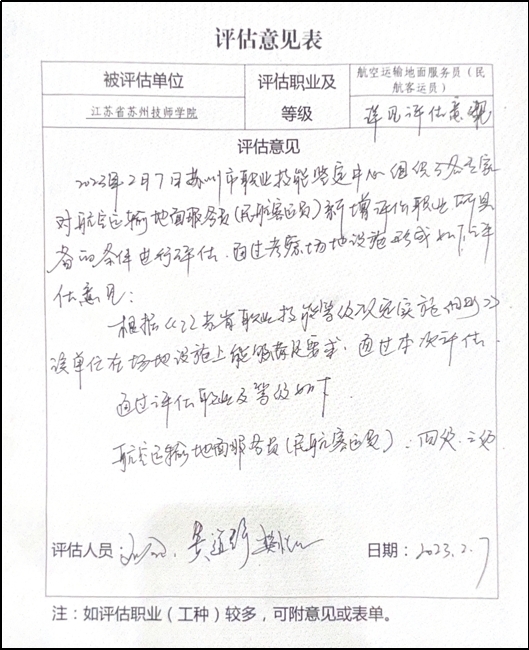 评估意见表
被评估单位
评估职业及
等级
航空运输地面服务员（民
航客运员）
江苏省苏州技师学院
详见评估意见
评估意见
2023年2月7日苏州市职业技能鉴定中心组织3名专家
对航空运输地面服务员(民航客运员)新增评估职业所具
备的条件进行评估. 通过考察场地设施形成如下评
估意见:
根据《江苏省职业技能等级认定实施细则》
该单位在场地设施上能够满足要求. 通过本次评估.
通过评估职业及等级如下
航空运输地面服务员(民航客运员). 四级. 三级
评估人员
日期：2023.2.7
注：如评估职业（工种）较多，可附意见或表单。